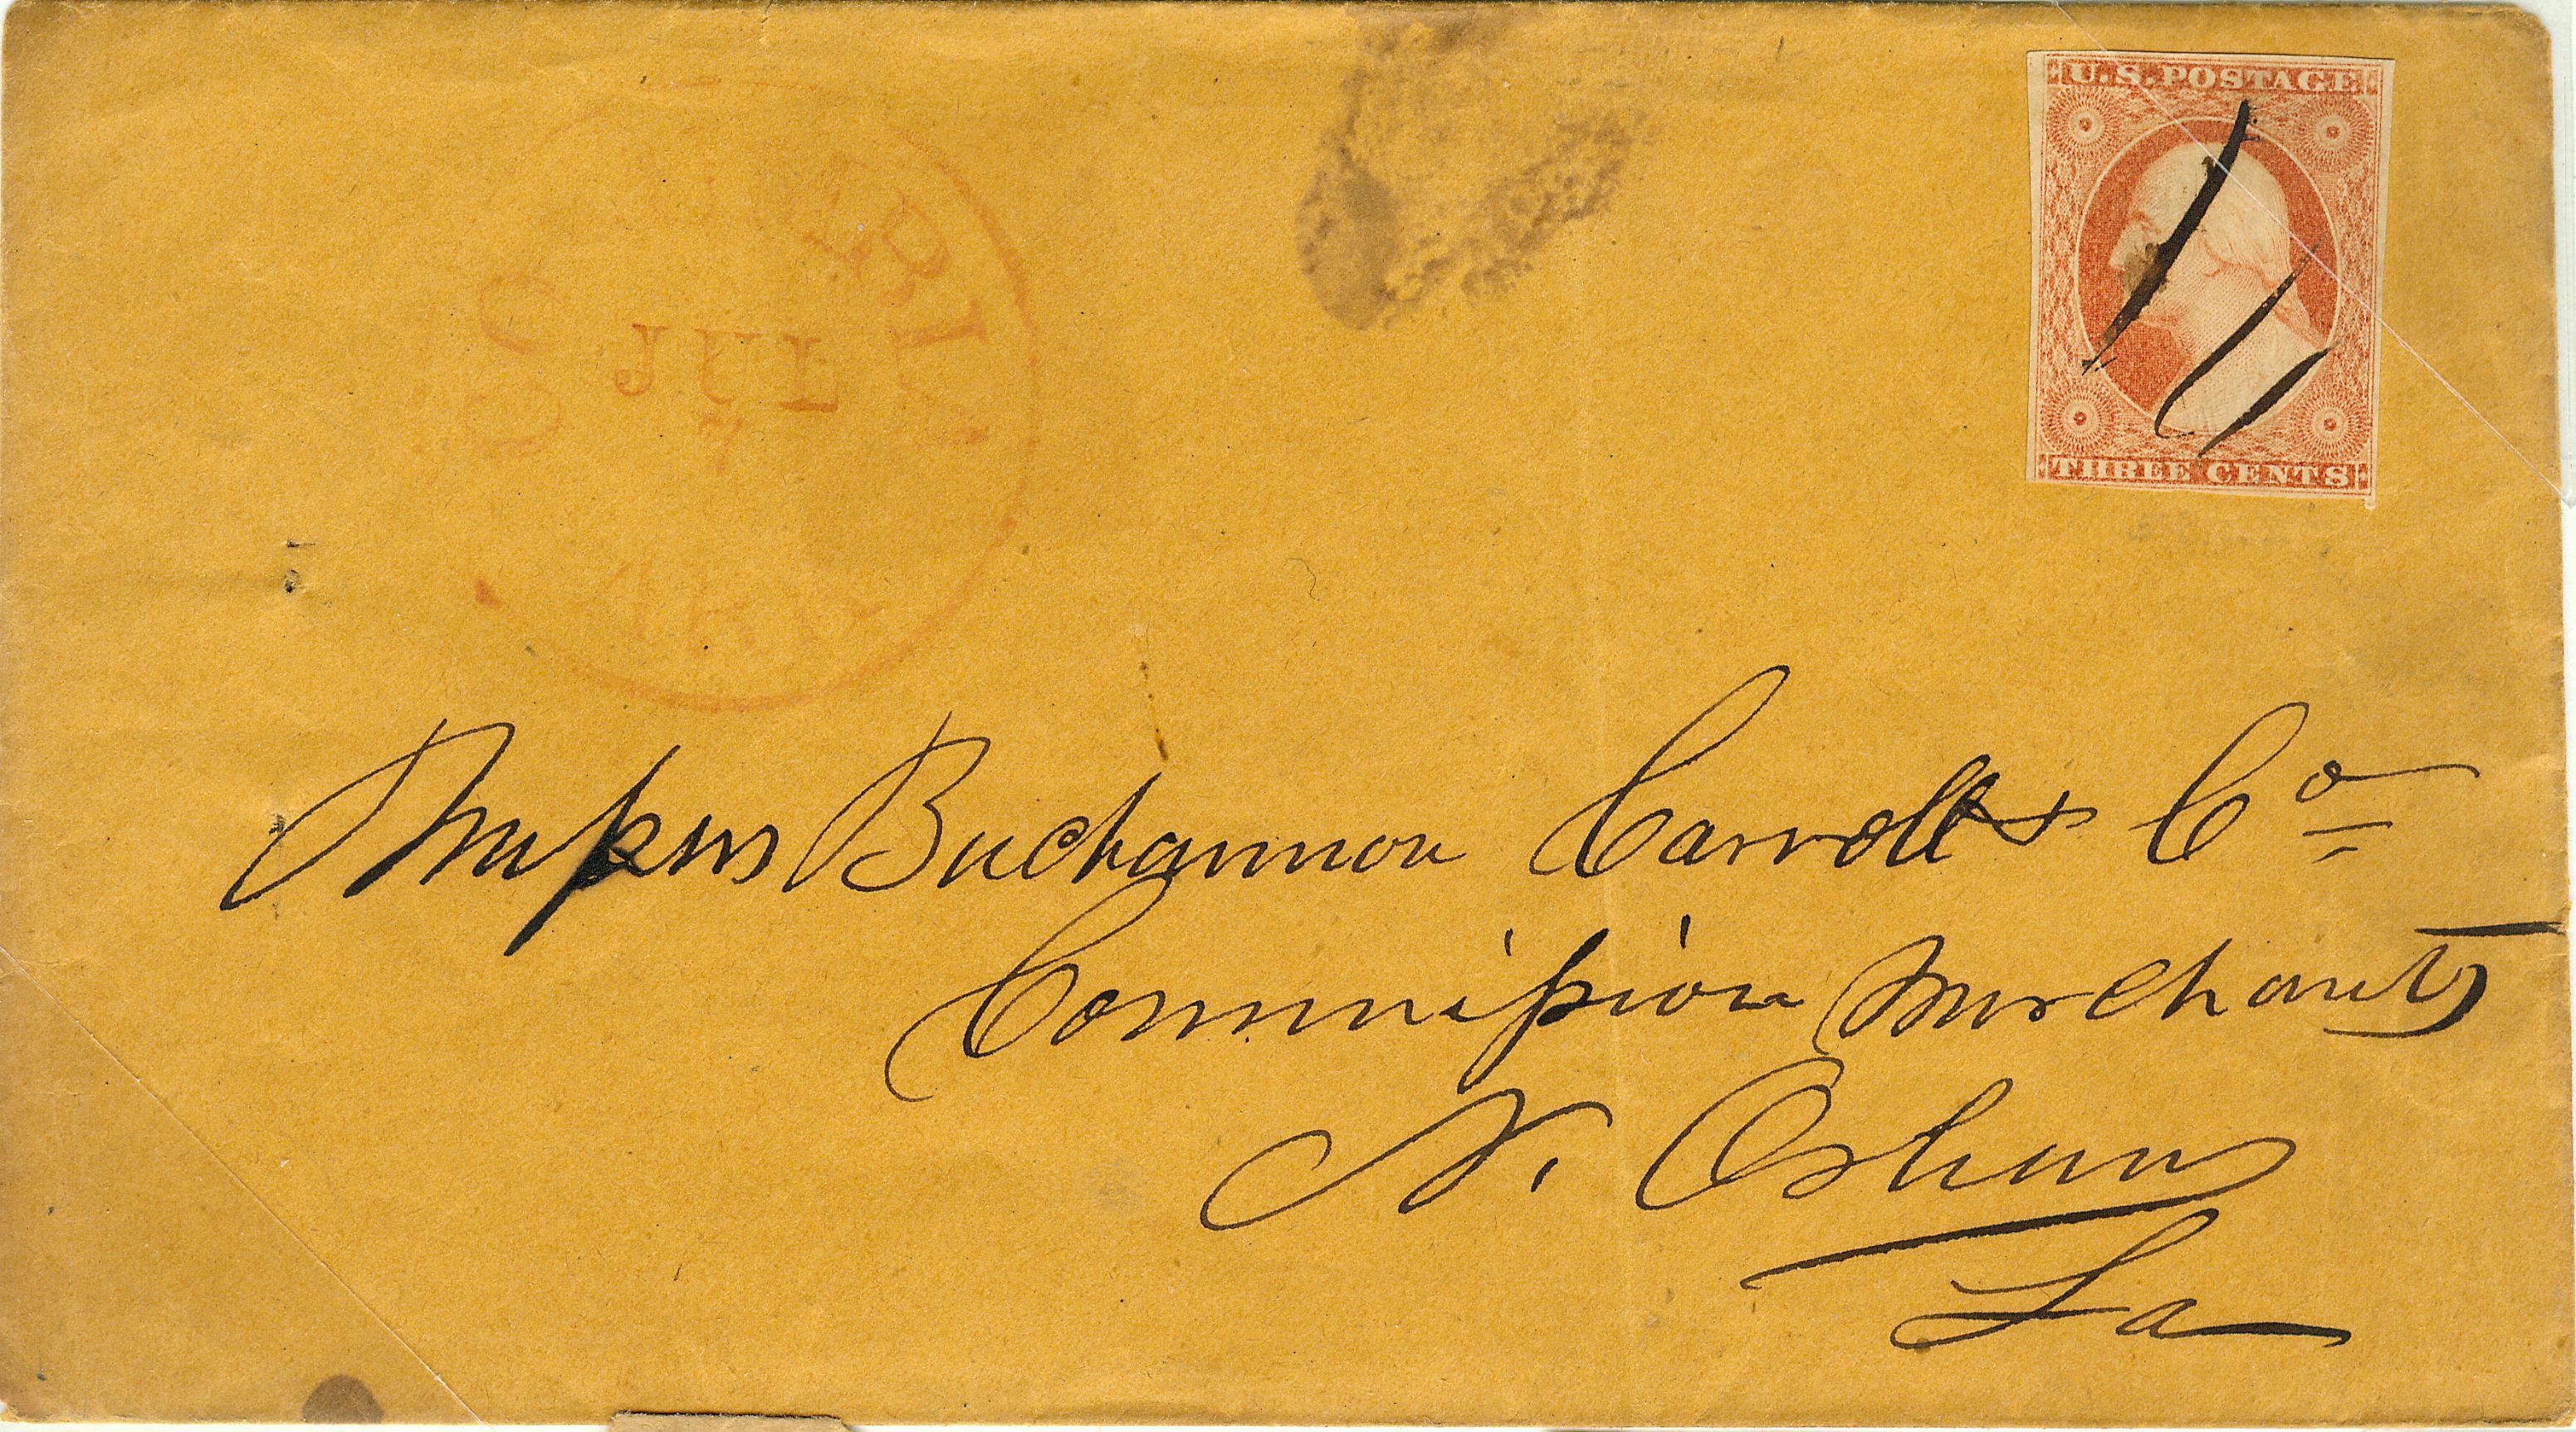 U.S. POSTAGE
THREE CENTS
JUL
Messrs Buchannon Carroll & Co
Commission Merchants
N. Orleans
La